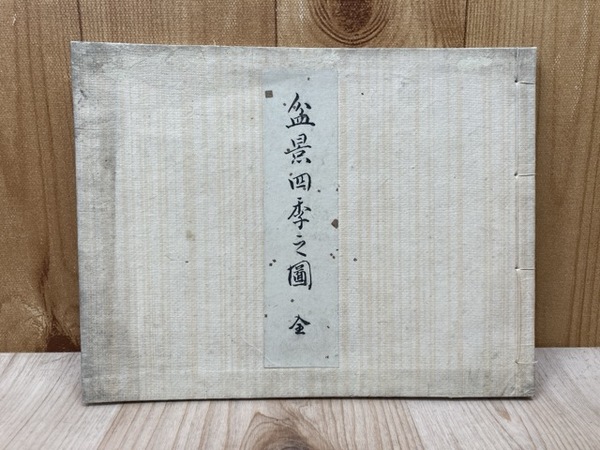 盆景四季之圖 全